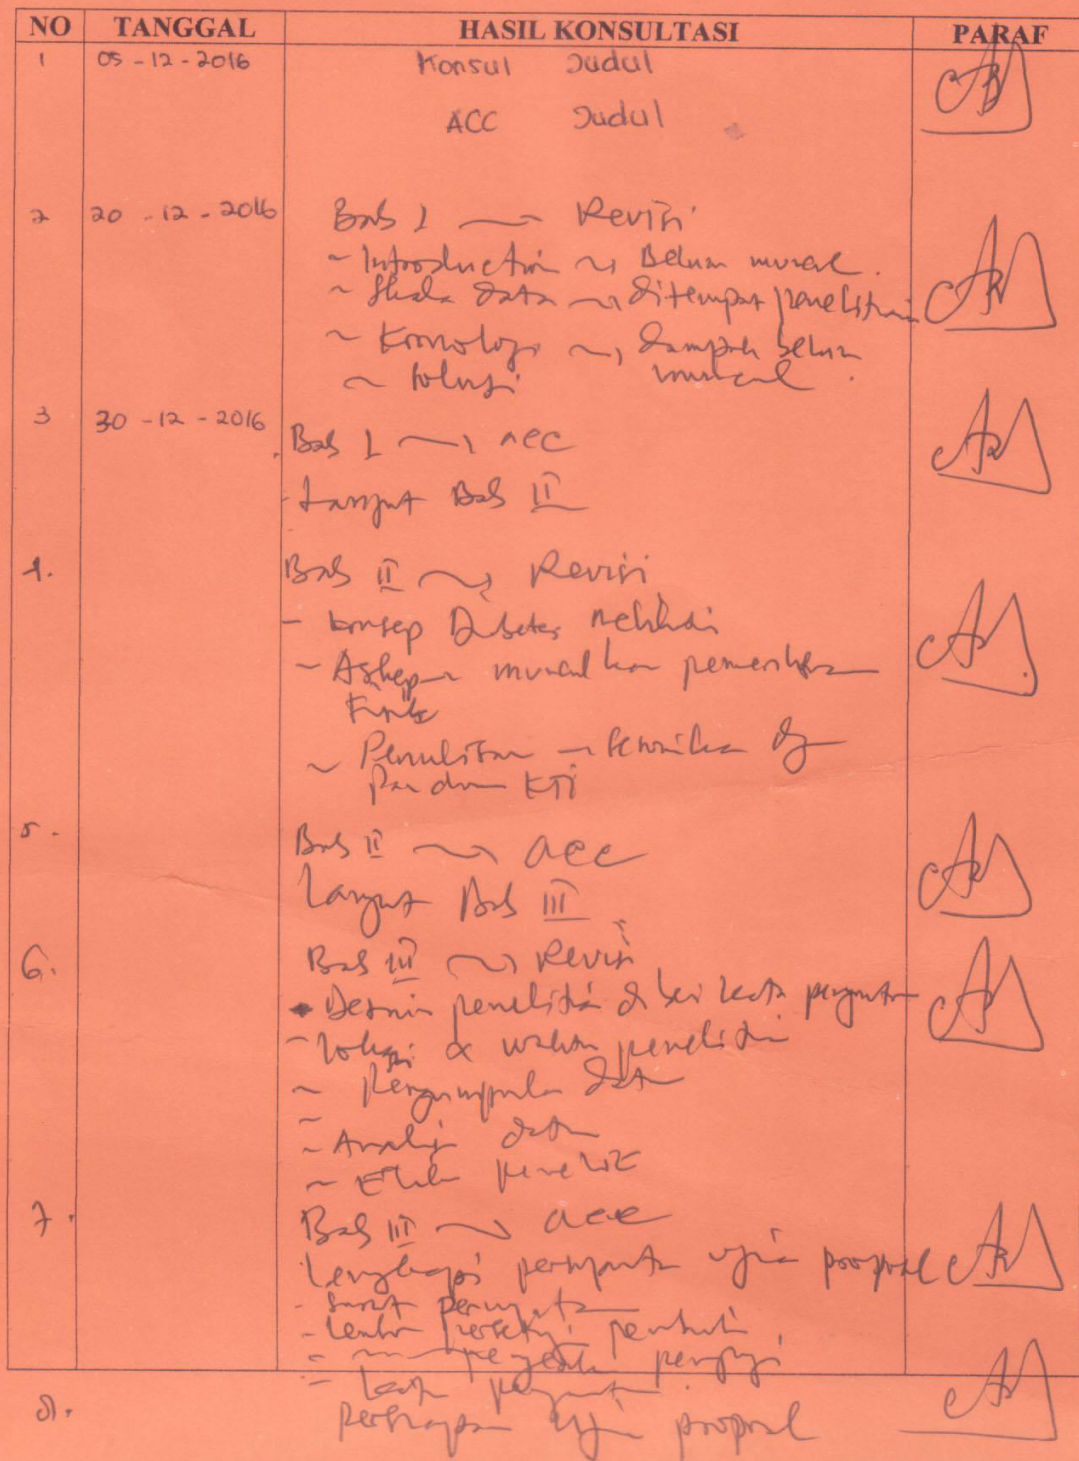 NO TANGGAL HASIL KONSULTASI PARAF
1 05 - 12 - 2016 Konsul Judul
ACC Judul
2 20 - 12 - 2016 Bab I Revisi
- Introduction Belum muncul.
- Skala data ditempat penelitian
- Kronologi dampak belum
- Solusi muncul.
3 30 - 12 - 2016 Bab I acc
- Lanjut Bab II
4. Bab II Revisi
- Konsep Diabetes Melitus
- Askep munculkan pemeriksaan
Fisik
- Penulisan
Panduan KTI
5. Bab II acc
Lanjut Bab III
6. Bab III Revisi
- Desain penelitian diberi kata pengantar
- Lokasi & waktu penelitian
- Pengumpulan data
- Analisis data
- Etika penelit
7. Bab III acc
Lengkapi ujian proposal
- Surat
- Lembar
- penguji
- kata pengantar.
8. Persiapan Ujian proposal